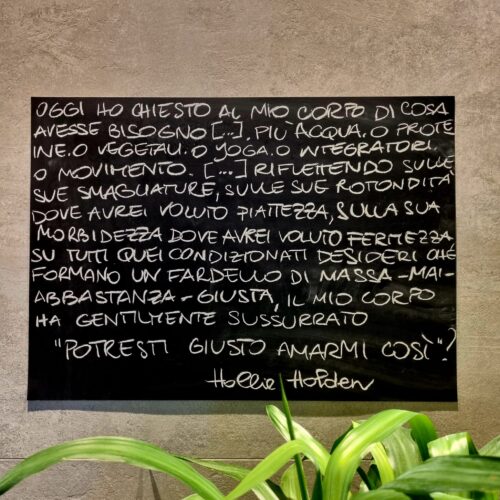 OGGI HO CHIESTO AL MIO CORPO DI COSA
AVESSE BISOGNO [...]. PIÙ ACQUA. O PROTE
INE. O VEGETALI. O YOGA. O INTEGRATORI.
O MOVIMENTO. [...] RIFLETTENDO SULLE
SUE SMAGLIATURE, SULLE SUE ROTONDITÀ
DOVE AVREI VOLUTO PIATTEZZA, SULLA SUA
MORBIDEZZA DOVE AVREI VOLUTO FERMEZZA,
SU TUTTI QUEI CONDIZIONATI DESIDERI CHE
FORMANO UN FARDELLO DI MASSA - MAI -
ABBASTANZA - GIUSTA, IL MIO CORPO
HA GENTILMENTE SUSSURRATO
"POTRESTI GIUSTO AMARMI COSÌ"?
Hollie Holden